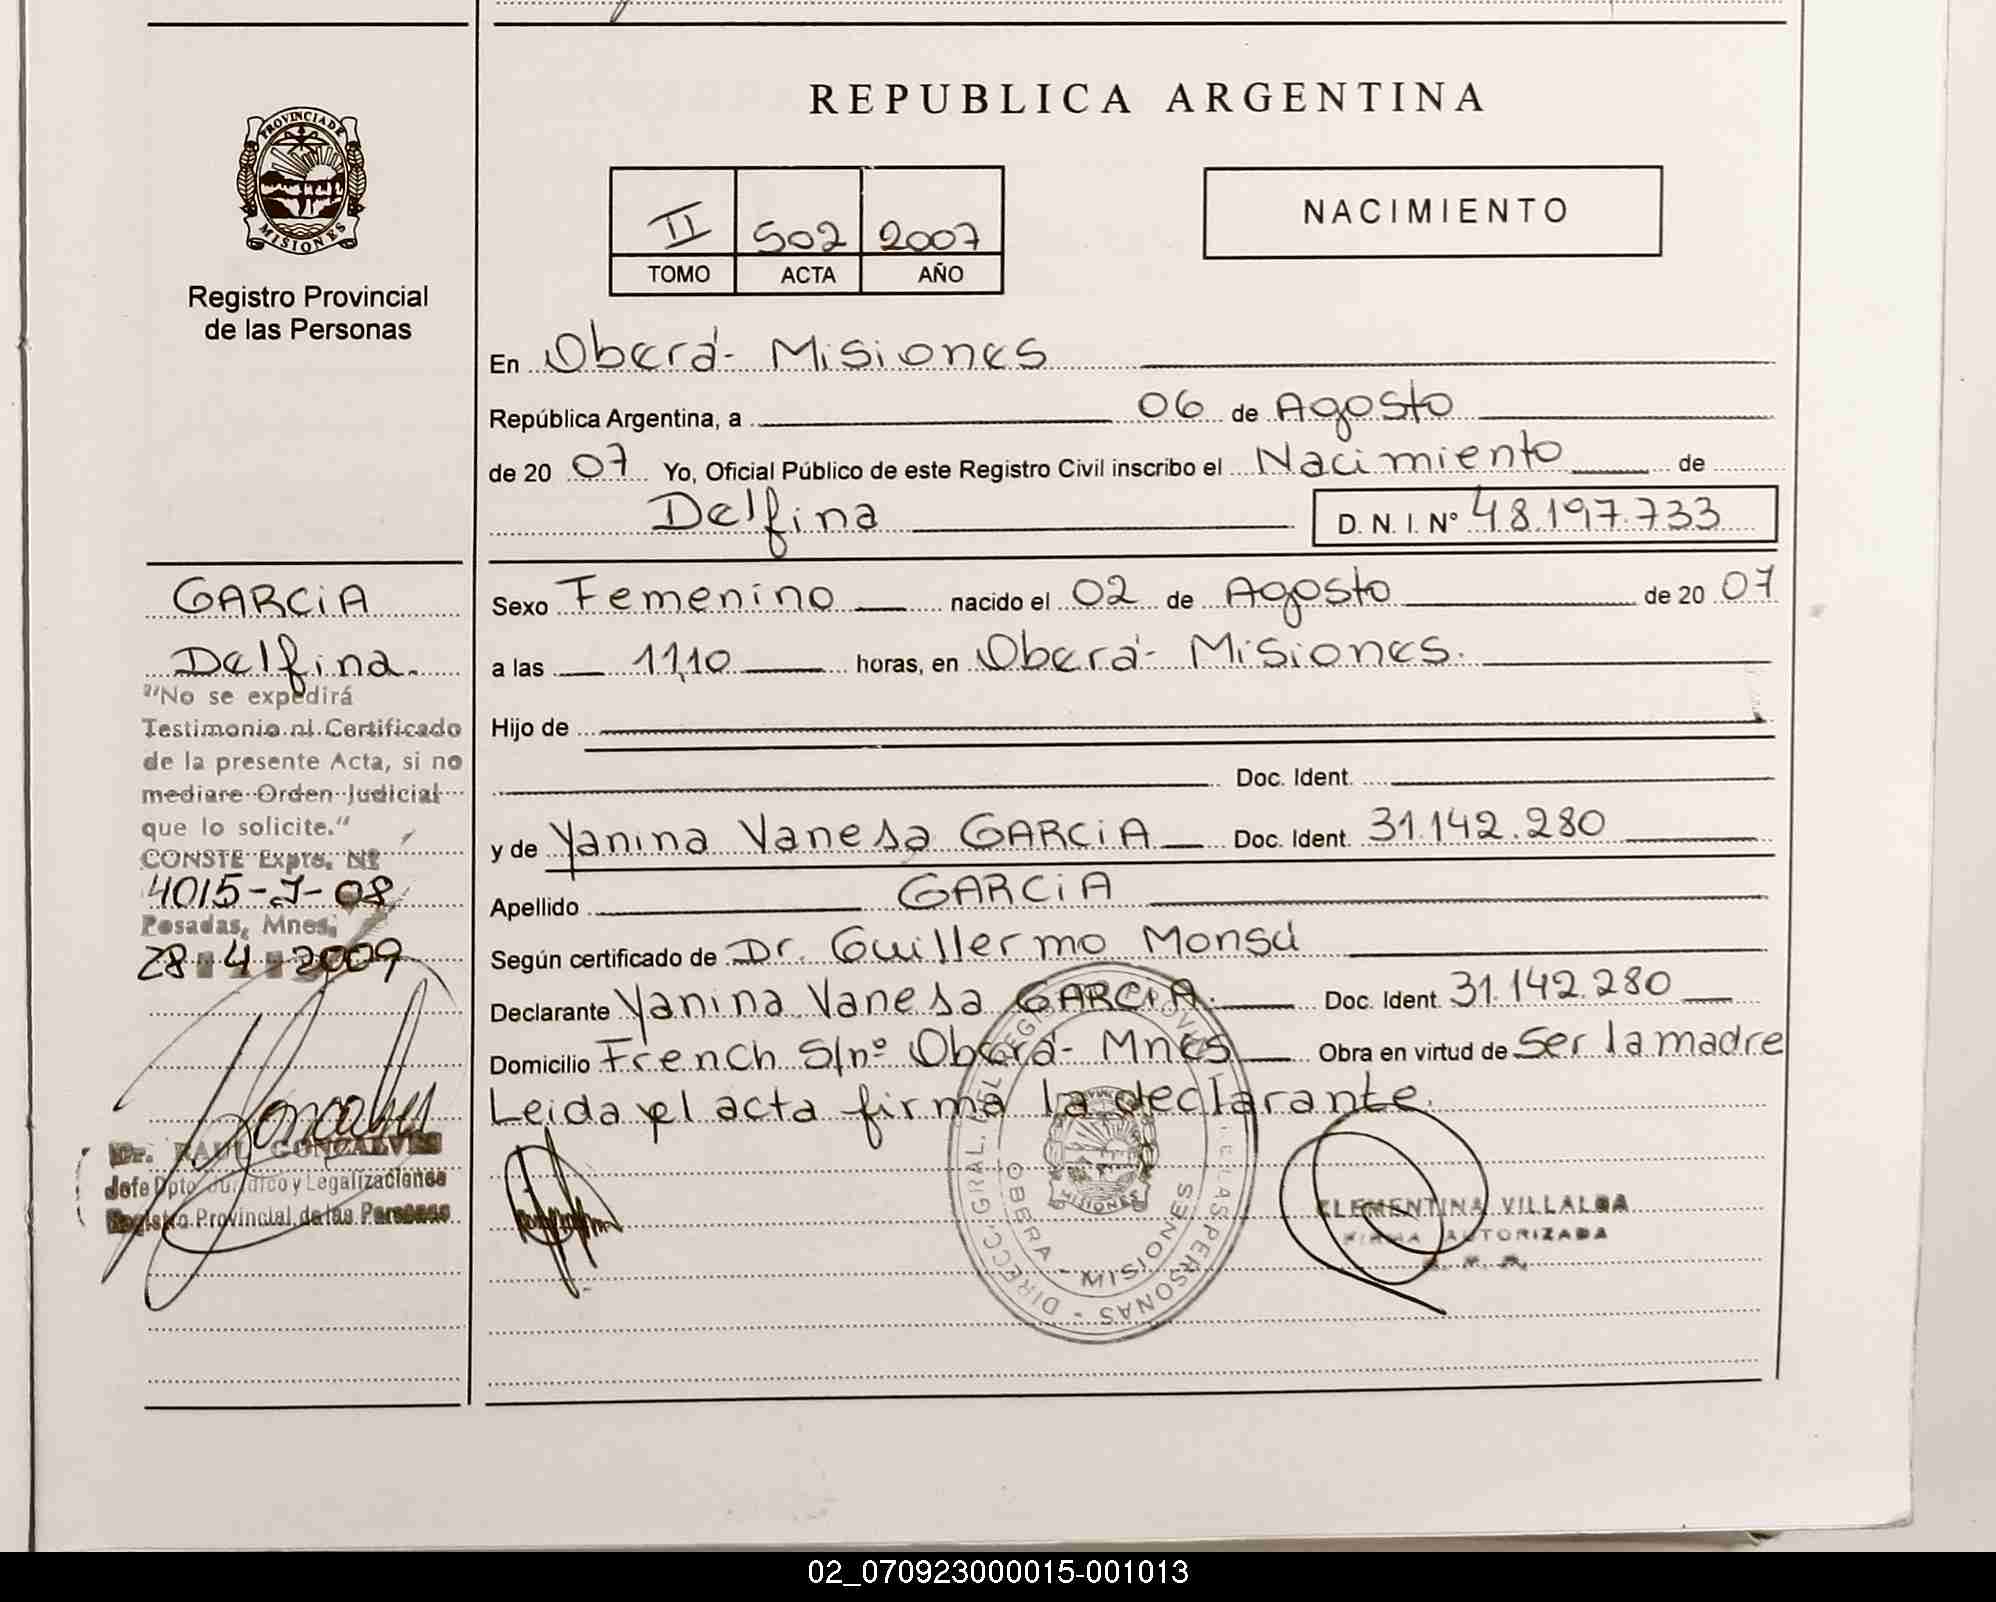 REPUBLICA ARGENTINA
PROVINCIA DE
MISIONES
Registro Provincial
de las Personas
II 502 2007
TOMO ACTA AÑO
NACIMIENTO
En Oberá - Misiones
República Argentina, a 06 de Agosto
de 20 07 Yo, Oficial Público de este Registro Civil inscribo el Nacimiento de
Delfina D. N. I. N° 48.197.733
GARCiA
Delfina.
"No se expedirá
Testimonio ni Certificado
de la presente Acta, si no
mediare Orden Judicial
que lo solicite."
CONSTE Expte. Nº
4015-J-08
Posadas, Mnes,
28 4 2009
Dr. RAUL GONCALVES
Jefe Dpto Jurídico y Legalizaciones
Registro Provincial de las Personas
Sexo Femenino nacido el 02 de Agosto de 20 07
a las 11,10 horas, en Oberá - Misiones.
Hijo de
Doc. Ident.
y de Yanina Vanesa GARCiA Doc. Ident. 31.142.280
Apellido GARCiA
Según certificado de Dr. Guillermo Monsú
Declarante Yanina Vanesa GARCiA. Doc. Ident. 31.142.280
Domicilio French S/nº Oberá - Mnes Obra en virtud de Ser la madre
Leida el acta firma la declarante.
DIRECC. GRAL. DEL REG. PROV. DE LAS PERSONAS
OBERA - MISIONES
CLEMENTINA VILLALBA
FIRMA AUTORIZADA
02_070923000015-001013